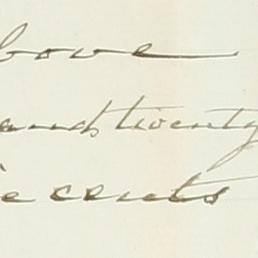 bove
and twenty
e cents